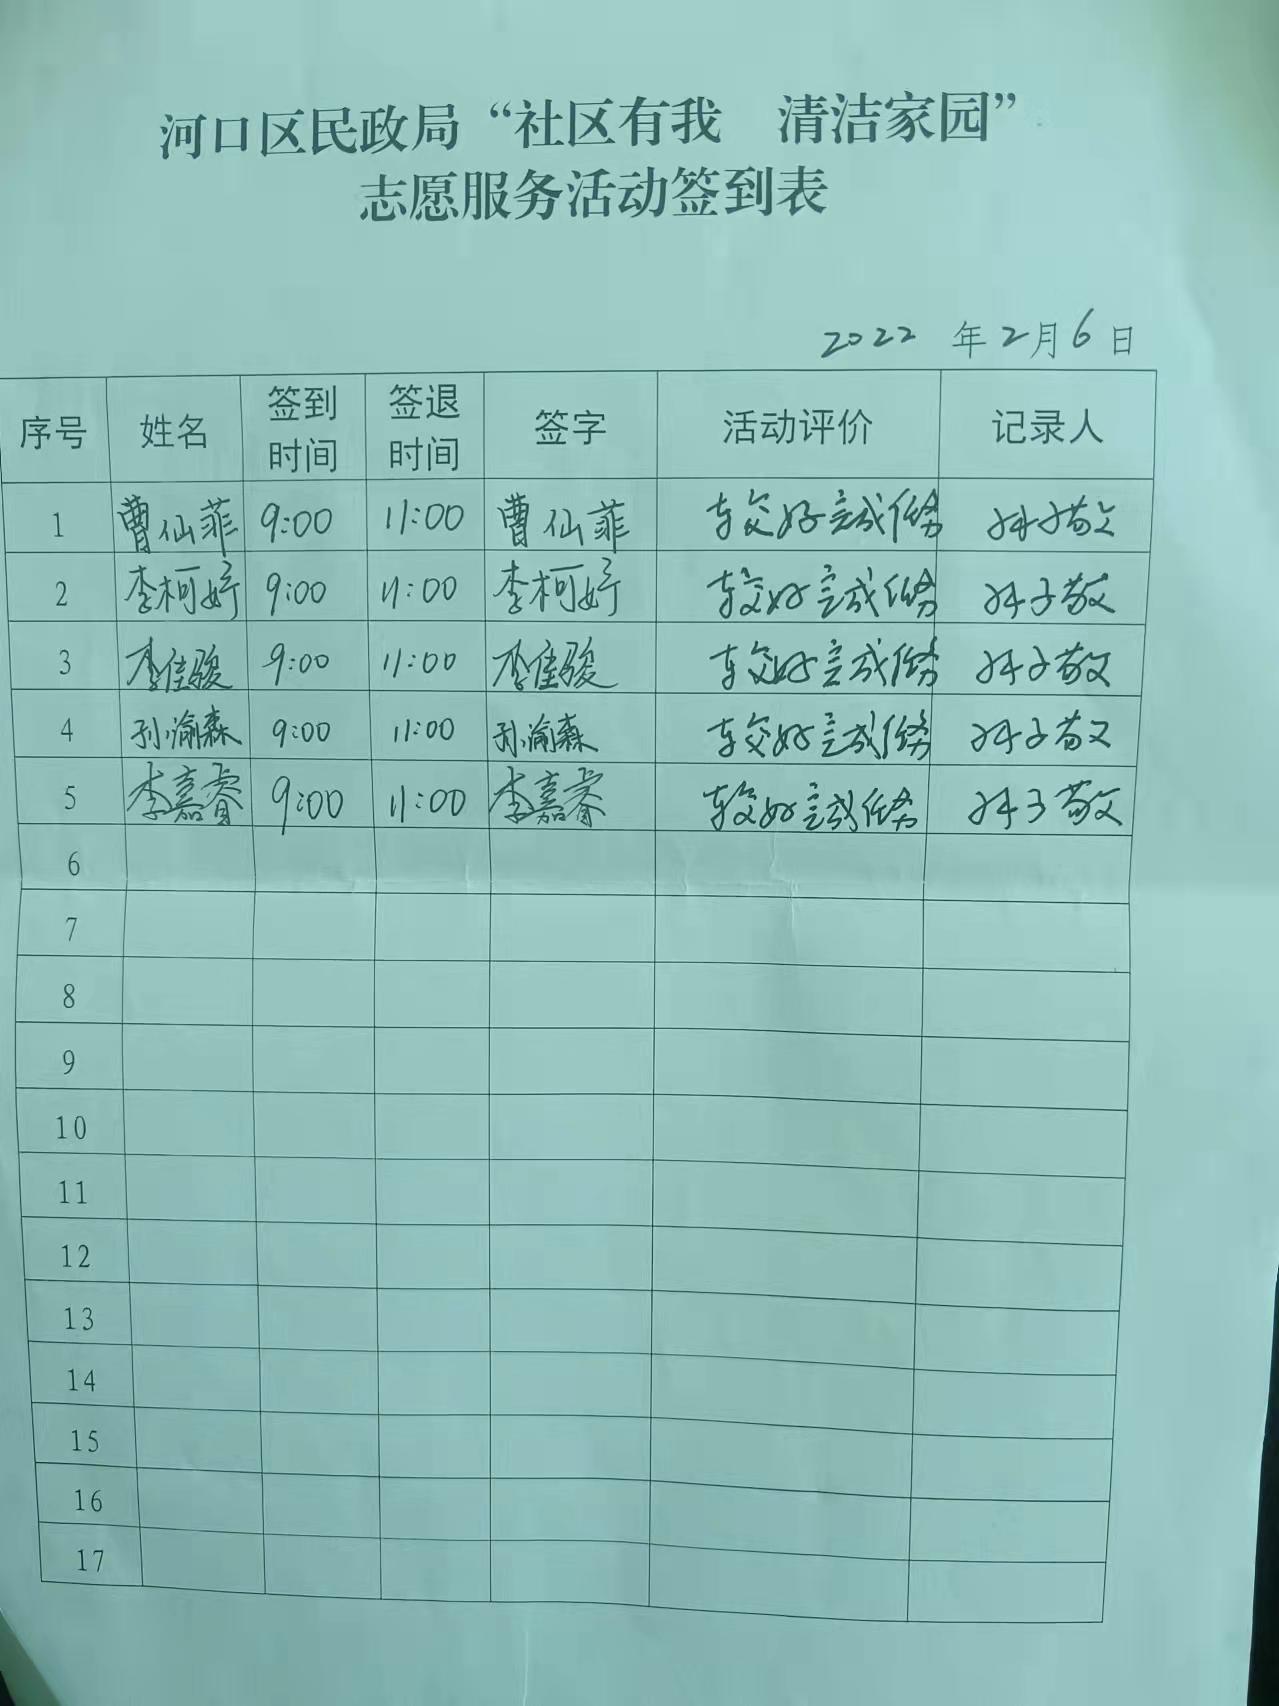 河口区民政局“社区有我 清洁家园”
志愿服务活动签到表
2022 年 2 月 6 日
序号 姓名 签到时间 签退时间 签字 活动评价 记录人
1 曹仙菲 9:00 11:00 曹仙菲 较好完成任务
2 李柯妤 9:00 11:00 李柯妤 较好完成任务
3 李佳骏 9:00 11:00 李佳骏 较好完成任务
4 孙渝森 9:00 11:00 孙渝森 较好完成任务
5 李嘉睿 9:00 11:00 李嘉睿 较好完成任务
6
7
8
9
10
11
12
13
14
15
16
17